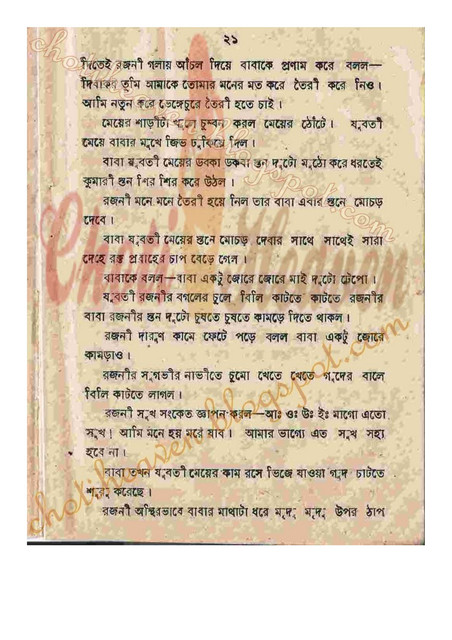 ২১
দিতেই রজনী গলায় আঁচল দিয়ে বাবাকে প্রণাম করে বলল—
তুমি আমাকে তোমার মনের মত করে তৈরী করে নিও।
আমি নতুন করে ভেঙ্গেচুরে তৈরী হতে চাই।
মেয়ের শাড়ীটা খুলে চুম্বন করল মেয়ের ঠোঁটে। যুবতী
মেয়ে বাবার মুখে জিভ ঢুকিয়ে দিল।
বাবা যুবতী মেয়ের ডবকা ডবকা স্তন দুটো মুঠো করে ধরতেই
কুমারী স্তন শির শির করে উঠল।
রজনী মনে মনে তৈরী হয়ে নিল তার বাবা এবার স্তনে মোচড়
দেবে।
বাবা যুবতী মেয়ের স্তনে মোচড় দেবার সাথে সাথেই সারা
দেহে রক্ত প্রবাহের চাপ বেড়ে গেল।
বাবাকে বলল—বাবা একটু জোরে জোরে মাই দুটো টেপো।
যুবতী রজনীর বগলের চুলে বিলি কাটতে কাটতে রজনীর
বাবা রজনীর স্তন দুটো চুষতে চুষতে কামড়ে দিতে থাকল।
রজনী দারুণ কামে ফেটে পড়ে বলল বাবা একটু জোরে
কামড়াও।
রজনীর সুগভীর নাভীতে চুমো খেতে খেতে গুদের বালে
বিলি কাটতে লাগল।
রজনী সুখ সংকেত জ্ঞাপন করল—আঃ ওঃ উঃ ইঃ মাগো এতো
সুখ! আমি মনে হয় মরে যাব। আমার ভাগ্যে এত সুখ সহ্য
হবে না।
বাবা তখন যুবতী মেয়ের কাম রসে ভিজে যাওয়া গুদ চাটতে
শুরু করেছে।
রজনী অস্থিরভাবে বাবার মাথাটা ধরে মৃদু মৃদু উপর ঠাপ